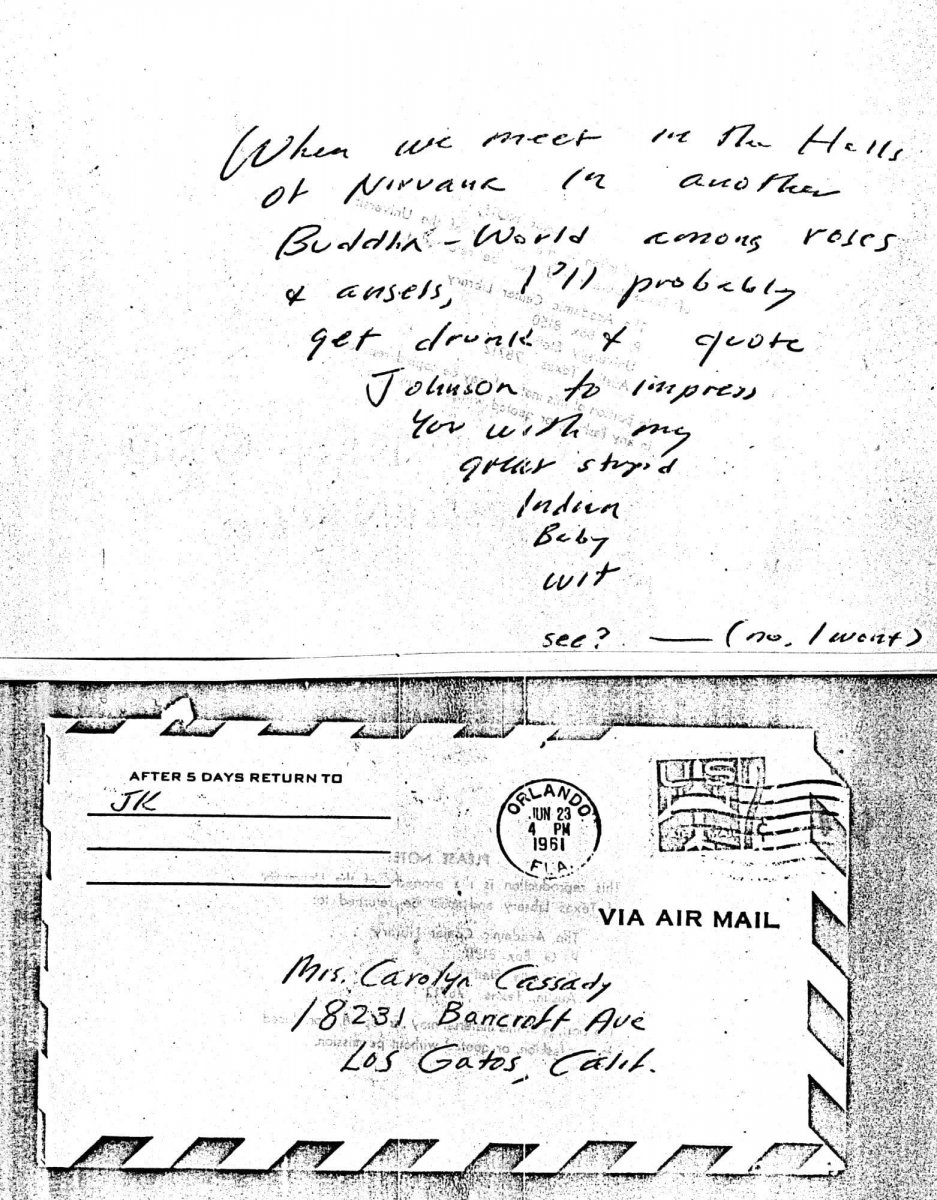 When we meet in the Halls
of Nirvana in another
Buddha-World among roses
& angels, I'll probably
get drunk & quote
Johnson to impress
You with my
great stupid
Indian
Baby
wit
see? — (no, I want)
AFTER 5 DAYS RETURN TO
JK
ORLANDO
JUN 23
4 PM
1961
FLA.
VIA AIR MAIL
PLEASE NOTE:
This reproduction is the property of the University
of Texas Library and must be returned to:
The Academic Center Library
Mrs. Carolyn Cassady
18231 Bancroft Ave
Los Gatos, Calif.